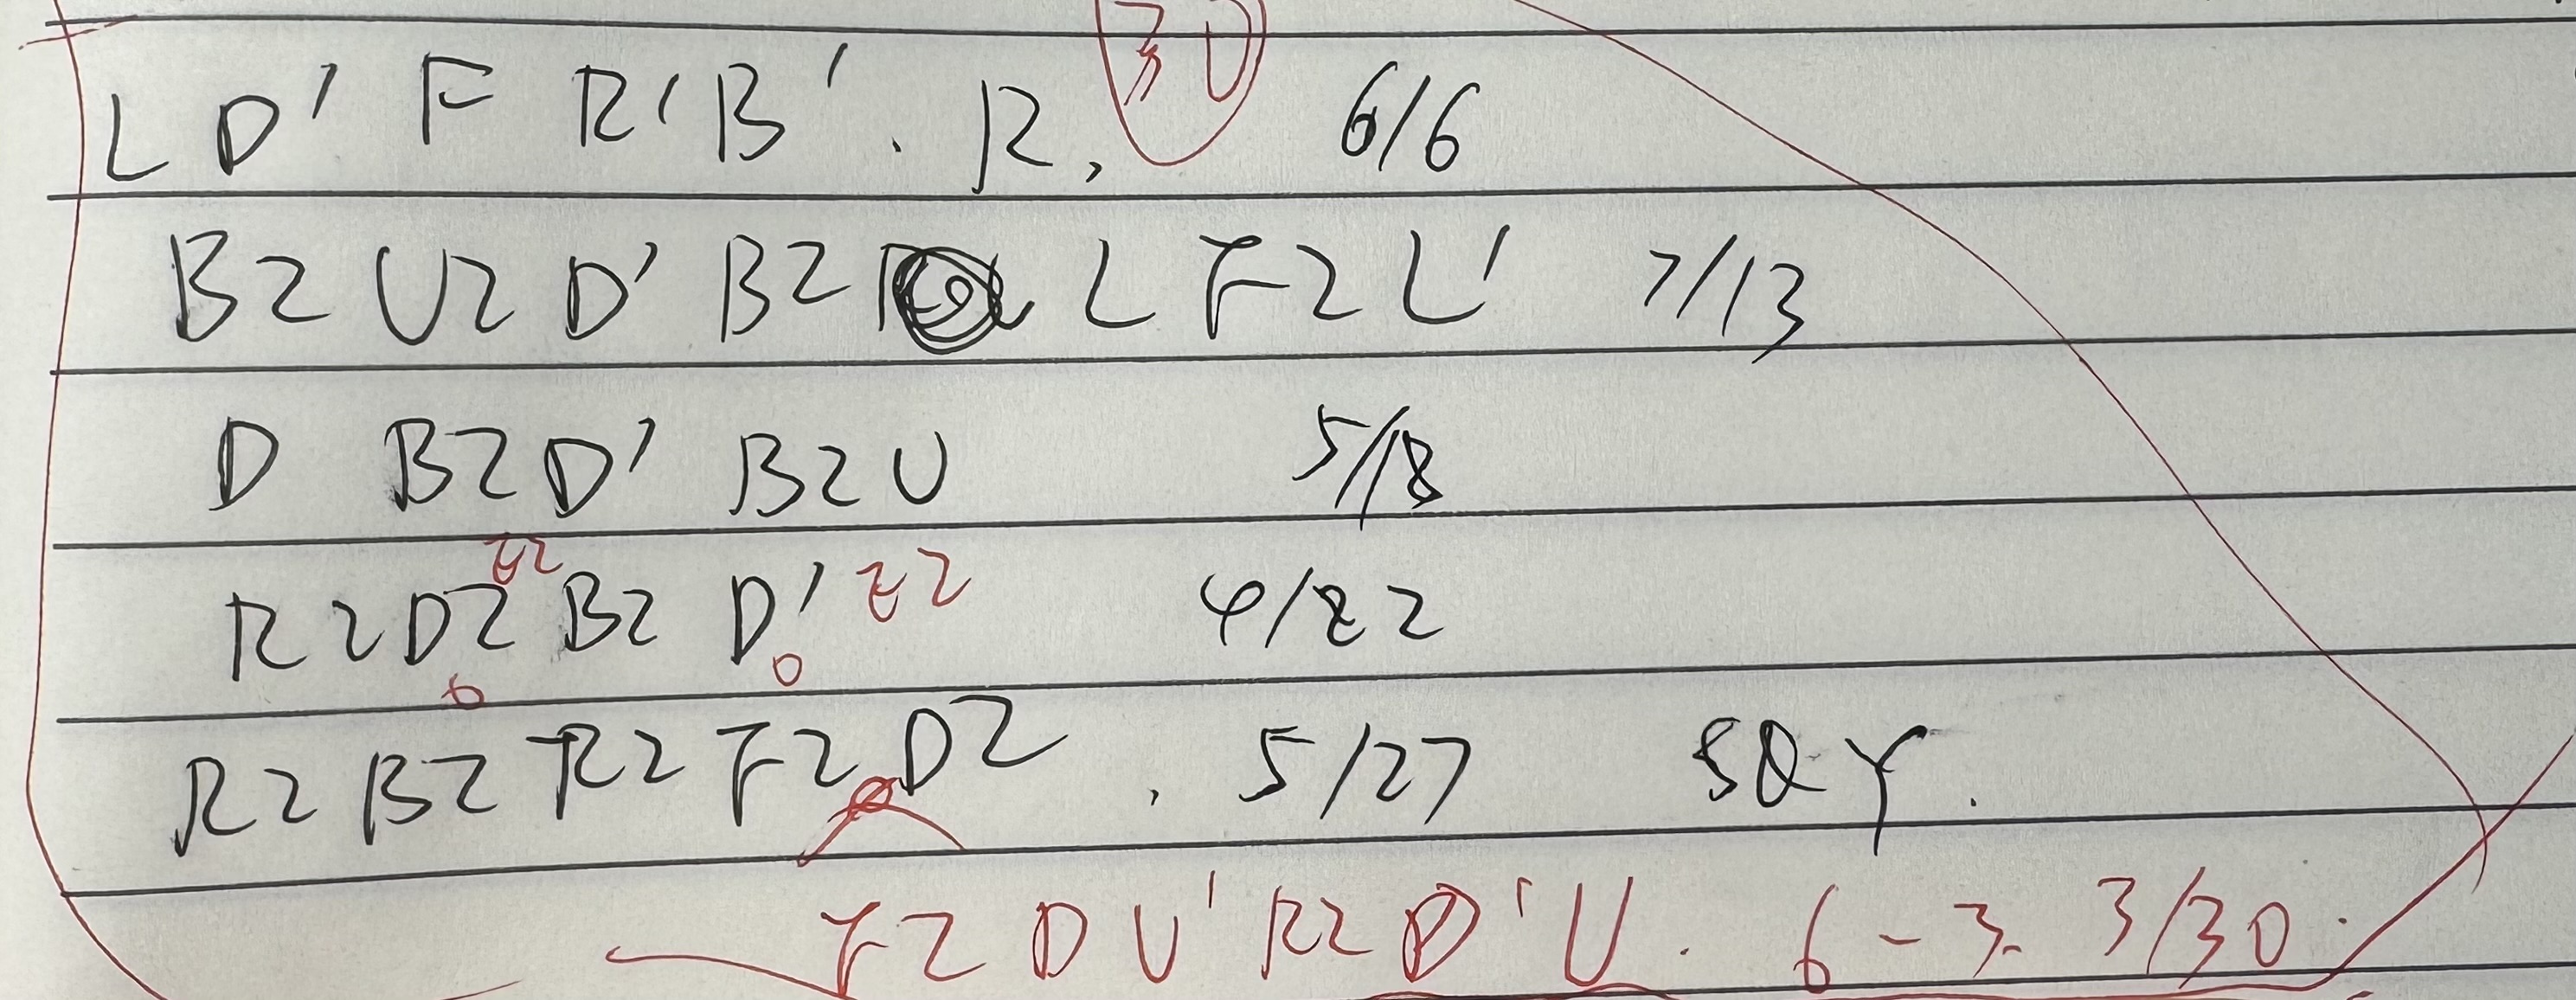 30
L D' F R' B' . R , 6/6
B2 U2 D' B2 L F2 L' 7/13
D B2 D' B2 U 5/18
E2 E2
R2 D2 B2 D' 4/22
R2 B2 R2 F2 D2 . 5/27
F2 D U' R2 D' U . 6-3. 3/30.